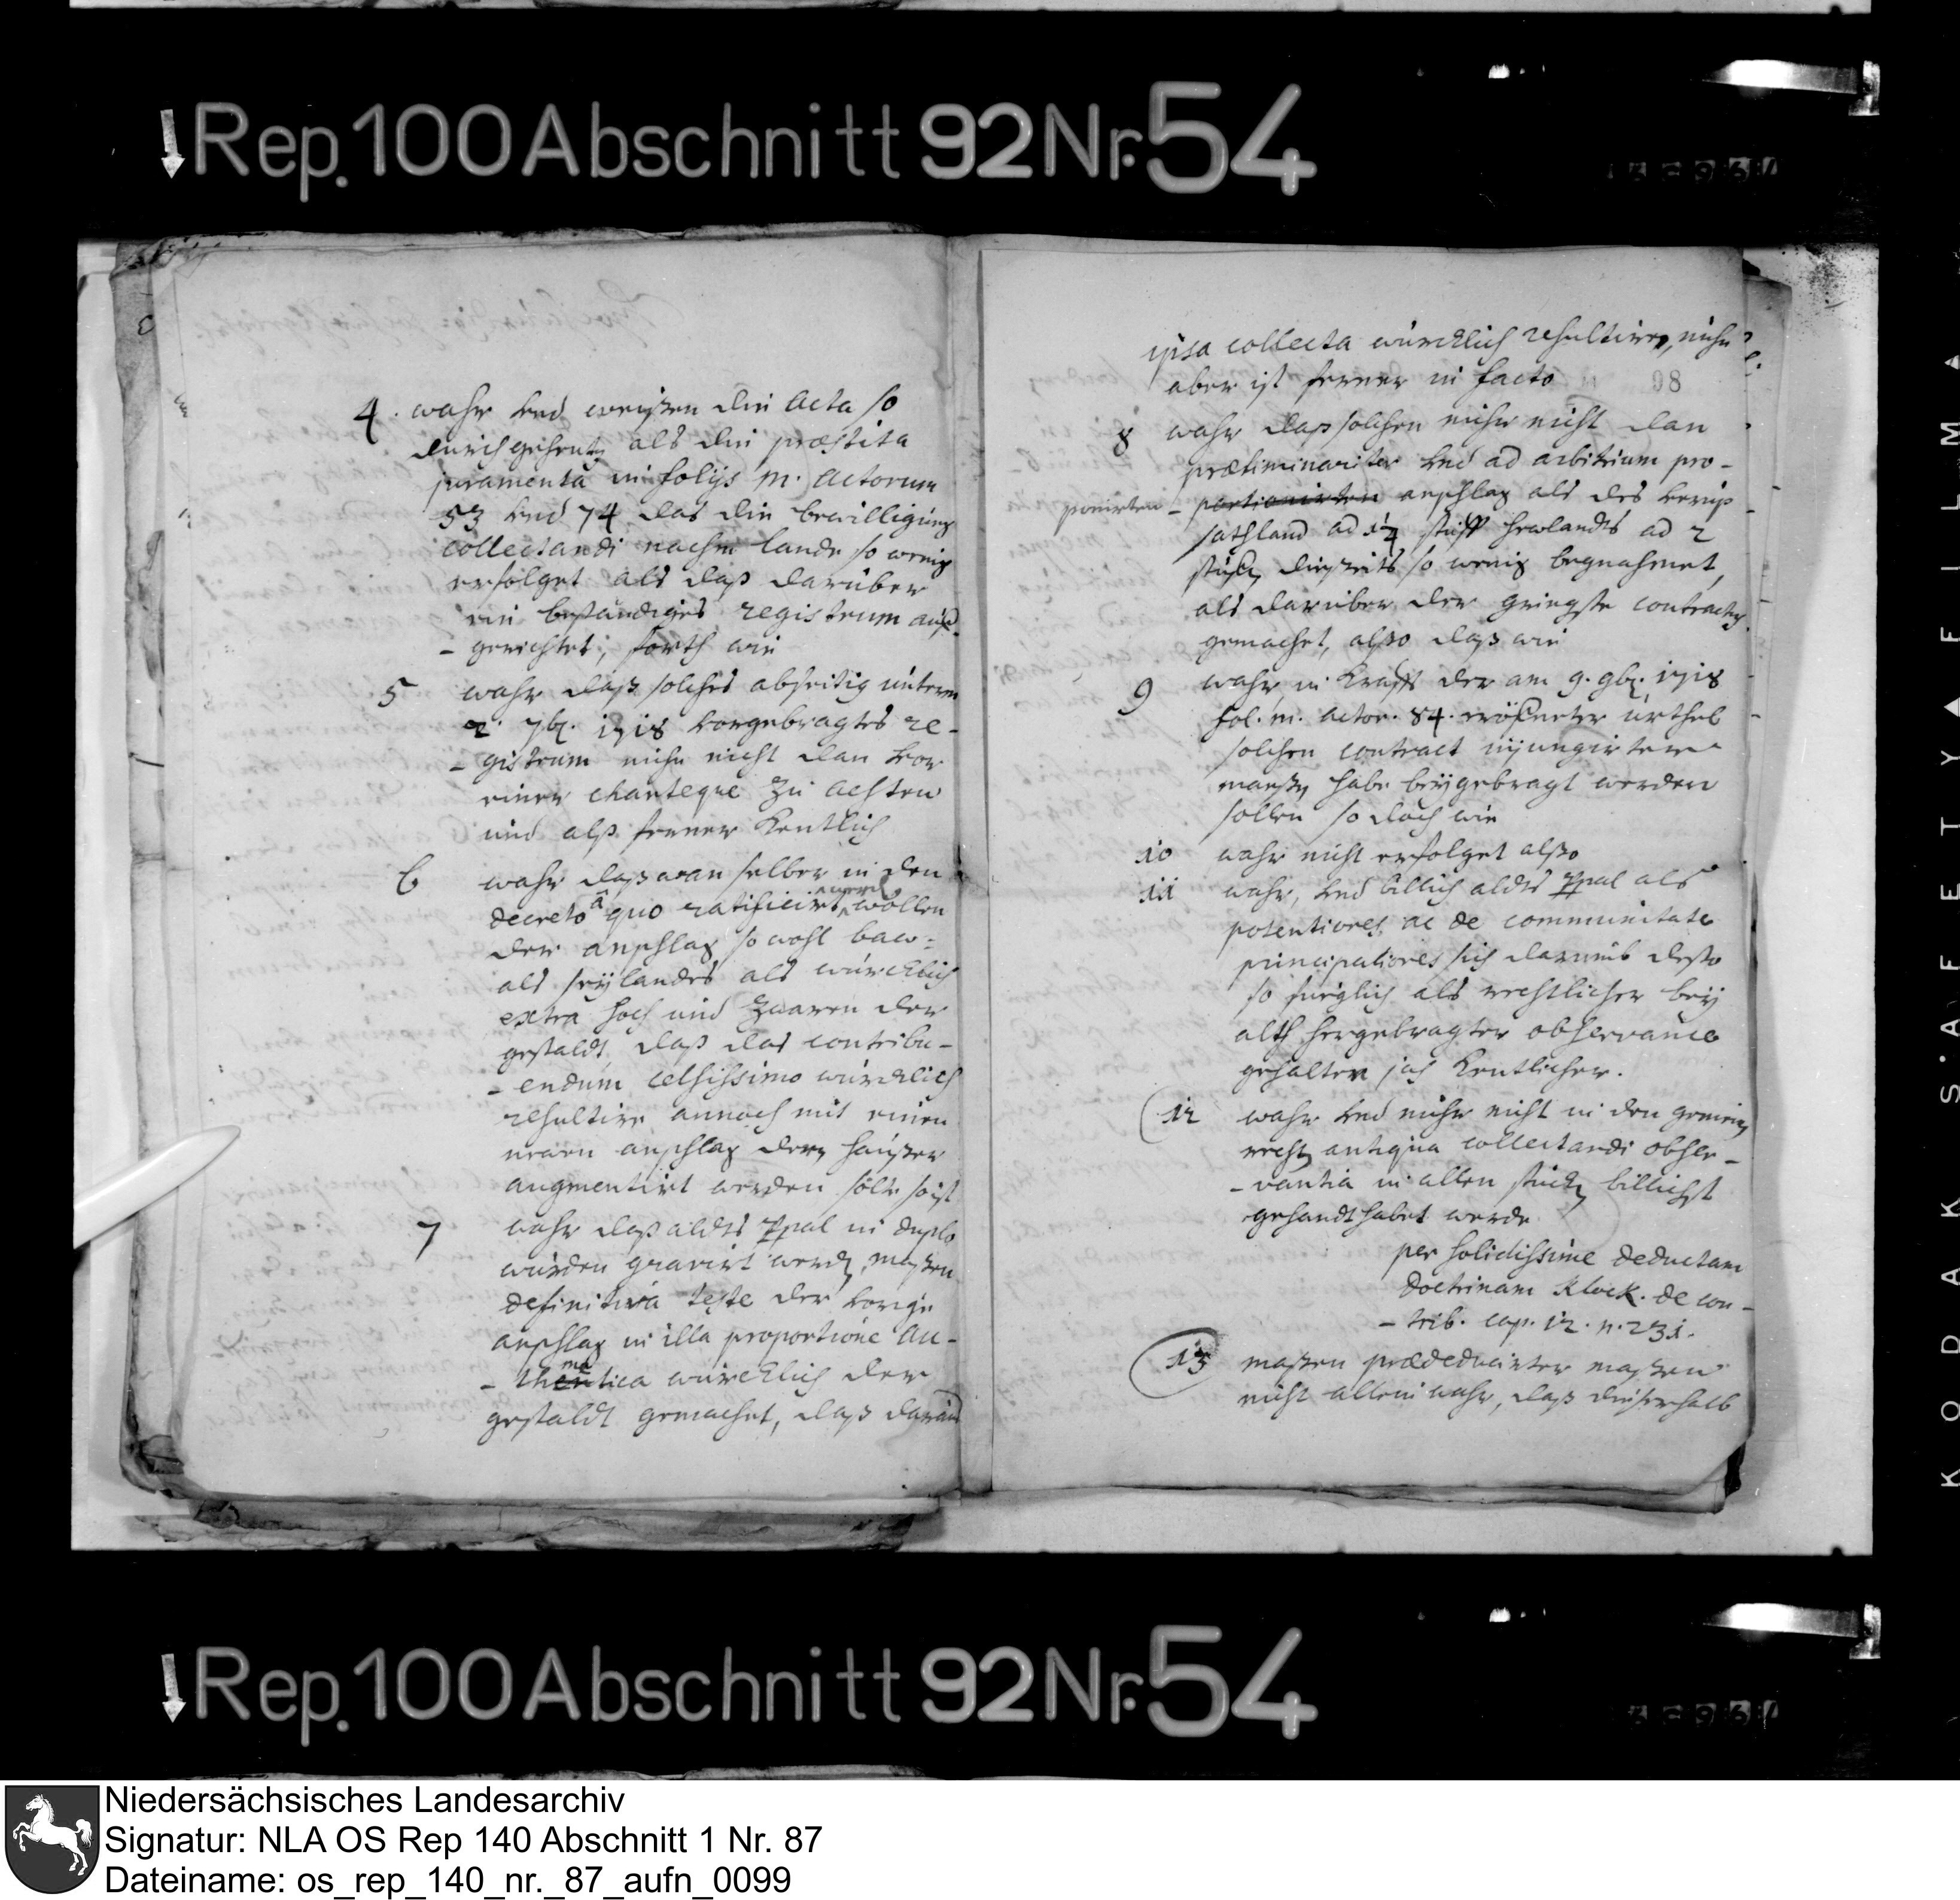 Rep. 100 Abschnitt 92 Nr. 54
4. wahr und weisen die Acta so
durchgehents als die præstita
juramenta in folijs m. Actorum
53 und 74 das die bewilligung
collectandi nachm lande so wenig
erfolget als daß darüber
ein beständiges registrum auf
- gerichtet, forth wie
5 wahr daß solches abseitig unterm
2. 7br. 1718 vorgebragtes re-
- gistrum mehr nicht dan vor
einer charteque zu achten
und alß ferner kentlich
6 wahr daß wan selber in den
decreto à quo ratificirt werden wollen
der anschlag so wohl baw-
als heylandes als würcklich
extra hoch und zwaren der
gestaldt daß das contribu-
- endum celsissimo würcklich
resultire annoch mit einen
neuen anschlag dern häuser
augmentirt werden solte so ist
7 wahr daß aldts ppal in duplo
würden gravirt werden, maßen
definitiva teste der vorige
anschlag in illa proportione au-
- thentica würcklich der
gestaldt gemachet, daß daraus
ipsa collecta würcklich resultire, mehr
aber ist ferner in facto
98
8 wahr daß solchen mehr nicht dan
præliminariter und ad arbitrium pro-
ponirten - portionirten anschlag als des
sathland ad 14 hewlandts ad 2
stüber diesseits so wenig begnahmet,
als darüber der gringste contractus
gemachet, also daß wie
9 wahr in krafft der am 9. 9br. 1718
fol. m. actor. 84. eröfneter urthel
solchen contract injungirter
maeßen habe beygebragt werden
sollen so doch wie
10 wahr nicht erfolget also
11 wahr, und billich aldts ppal als
potentiores ac de communitate
principaliores sich darumb desto
so fueglich als rechtlicher bey
alth hergebragter observance
gehalten kentlicher.
12 wahr und mehr nicht in den gemeinen
rechten antiqua collectandi obser-
- vantia in allen stücken billichst
gehandthabet werde
per solidissime deductam
doctrinam Klock. de con-
- trib. cap. 12. n. 231.
13 maßen prædeducirter maßen
nicht allein wahr, daß dieserhalb
Rep. 100 Abschnitt 92 Nr. 54
KODAK SAFETY FILM
Niedersächsisches Landesarchiv
Signatur: NLA OS Rep 140 Abschnitt 1 Nr. 87
Dateiname: os_rep_140_nr._87_aufn_0099